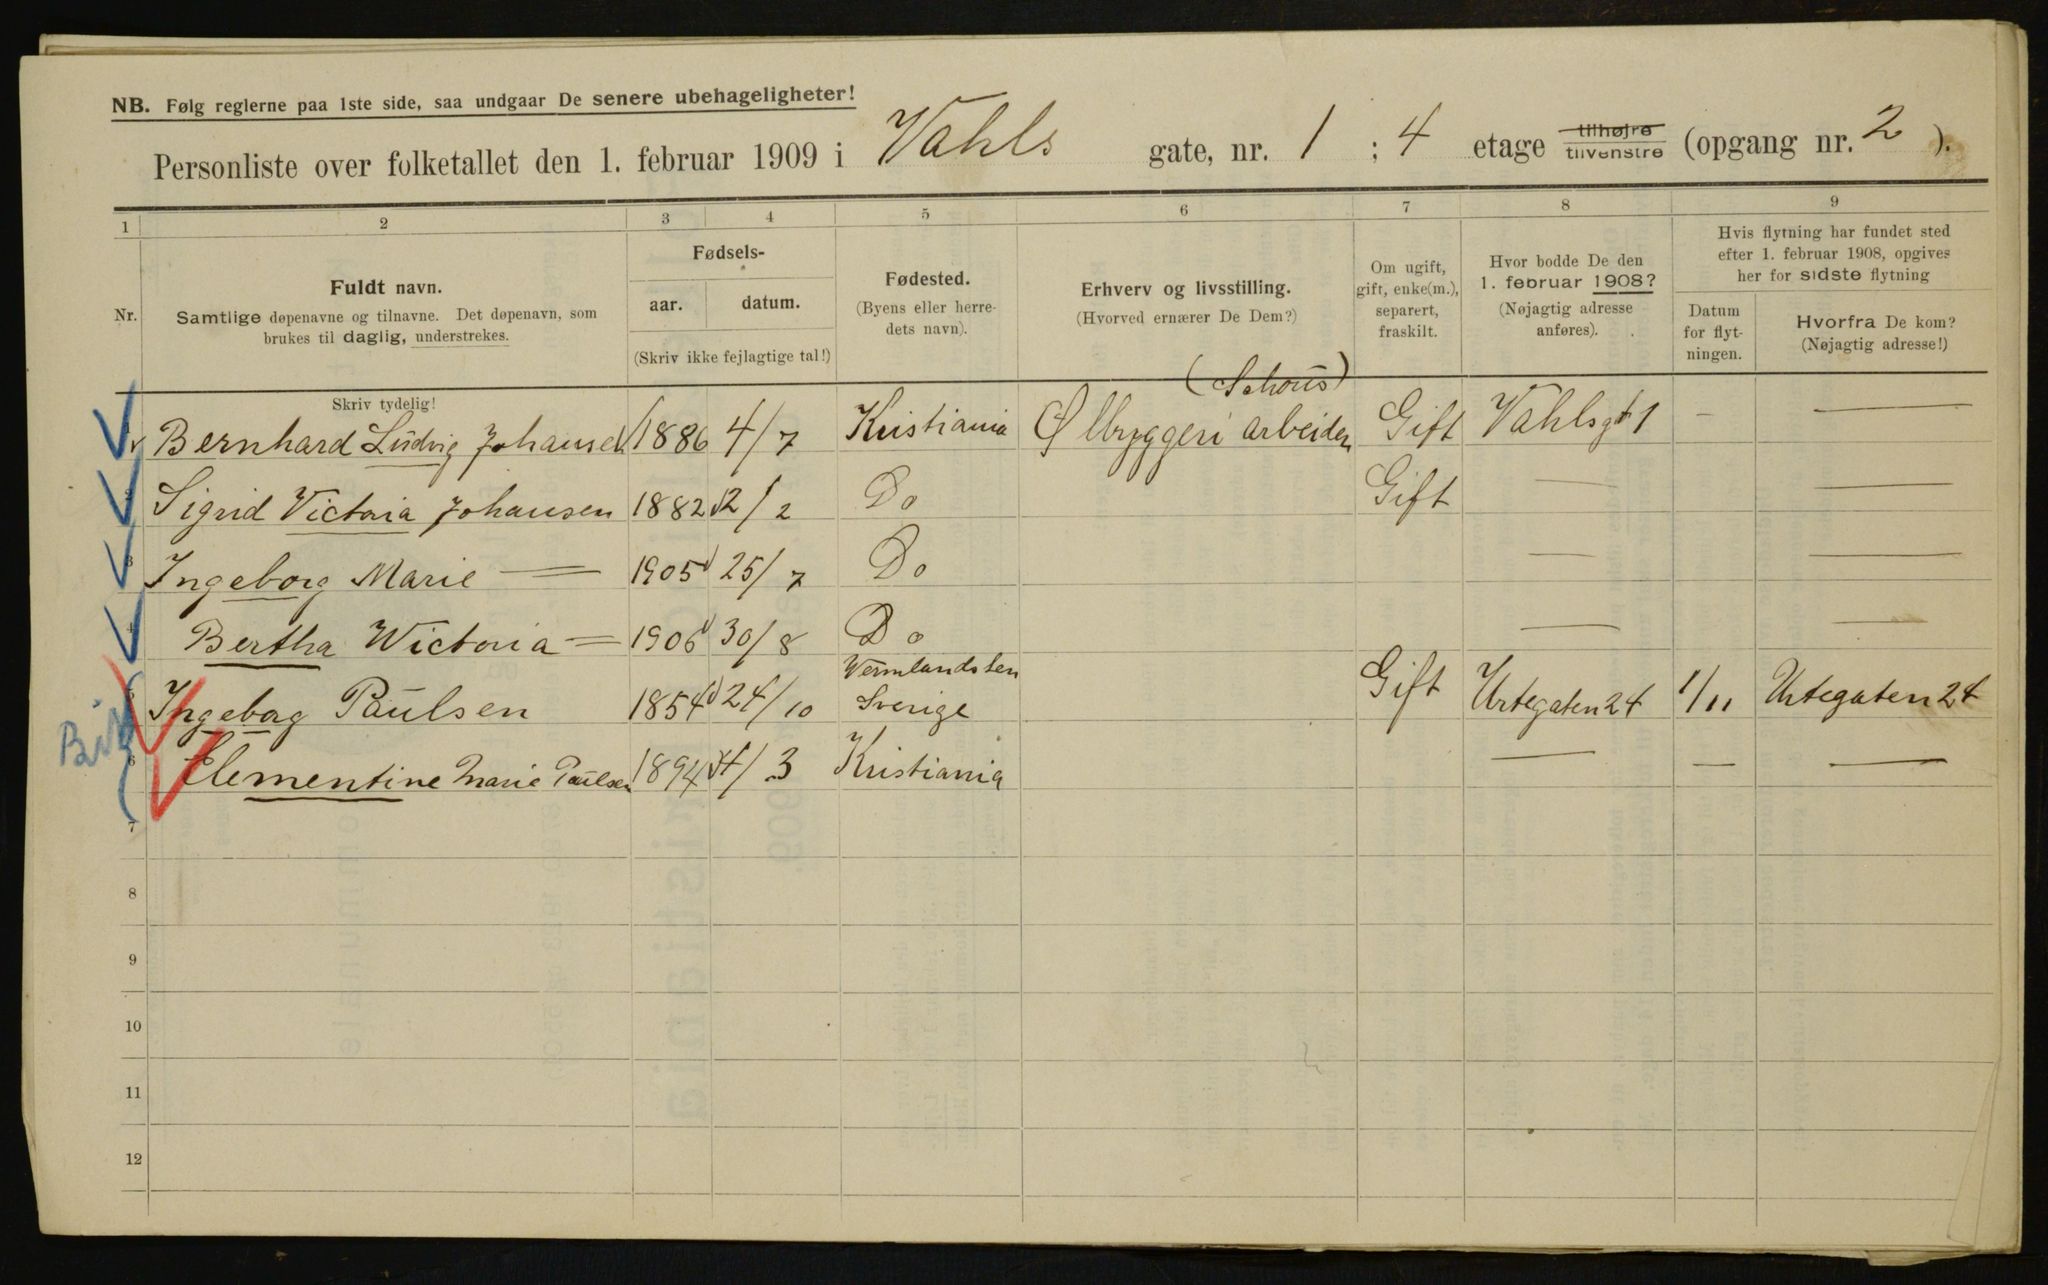 NB. Følg reglerne paa 1ste side, saa undgaar De senere ubehageligheter!
Personliste over folketallet den 1. februar 1909 i Vahls gate, nr. 1 ; 4 etage tilhøjre tilvenstre (opgang nr. 2 ).
1 2 3 4 5 6 7 8 9
Nr.
Fuldt navn.
Samtlige døpenavne og tilnavne. Det døpenavn, som
brukes til daglig, understrekes.
Skriv tydelig!
Fødsels-
aar. datum.
(Skriv ikke fejlagtige tal!)
Fødested.
(Byens eller herre-
dets navn).
Erhverv og livsstilling.
(Hvorved ernærer De Dem?)
Om ugift,
gift, enke(m.),
separert,
fraskilt.
Hvor bodde De den
1. februar 1908?
(Nøjagtig adresse
anføres).
Hvis flytning har fundet sted
efter 1. februar 1908, opgives
her for sidste flytning
Datum
for flyt-
ningen.
Hvorfra De kom?
(Nøjagtig adresse!)
(Schous)
1 Bernhard Ludvig Johansen 1886 4/7 Kristiania Ølbryggeri arbeider Gift Vahlsgt 1 — —
2 Sigrid Victoria Johansen 1882 12/2 Do Gift — —
3 Ingeborg Marie — 1905 25/7 Do — —
4 Bertha Wictoria — 1906 30/8 Do — —
Vermlandslen
5 Ingeborg Paulsen 1854 24/10 Sverige Gift Urtegaten 24 1/11 Urtegaten 24
6 Clementine Marie Paulsen 1894 /3 Kristiania — — —
7
8
9
10
11
12